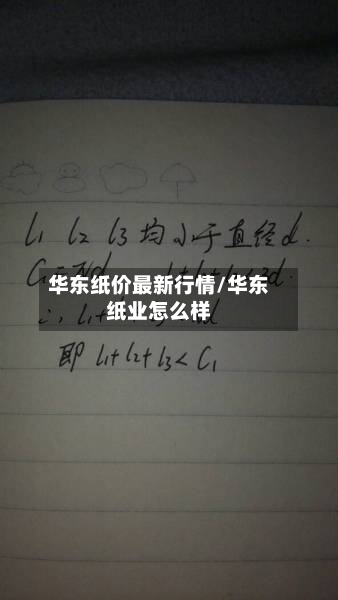 l₁ l₂ l₃ 均小于直径d.
华东纸价最新行情/华东
纸业怎么样
即 l₁+l₂+l₃<C₁